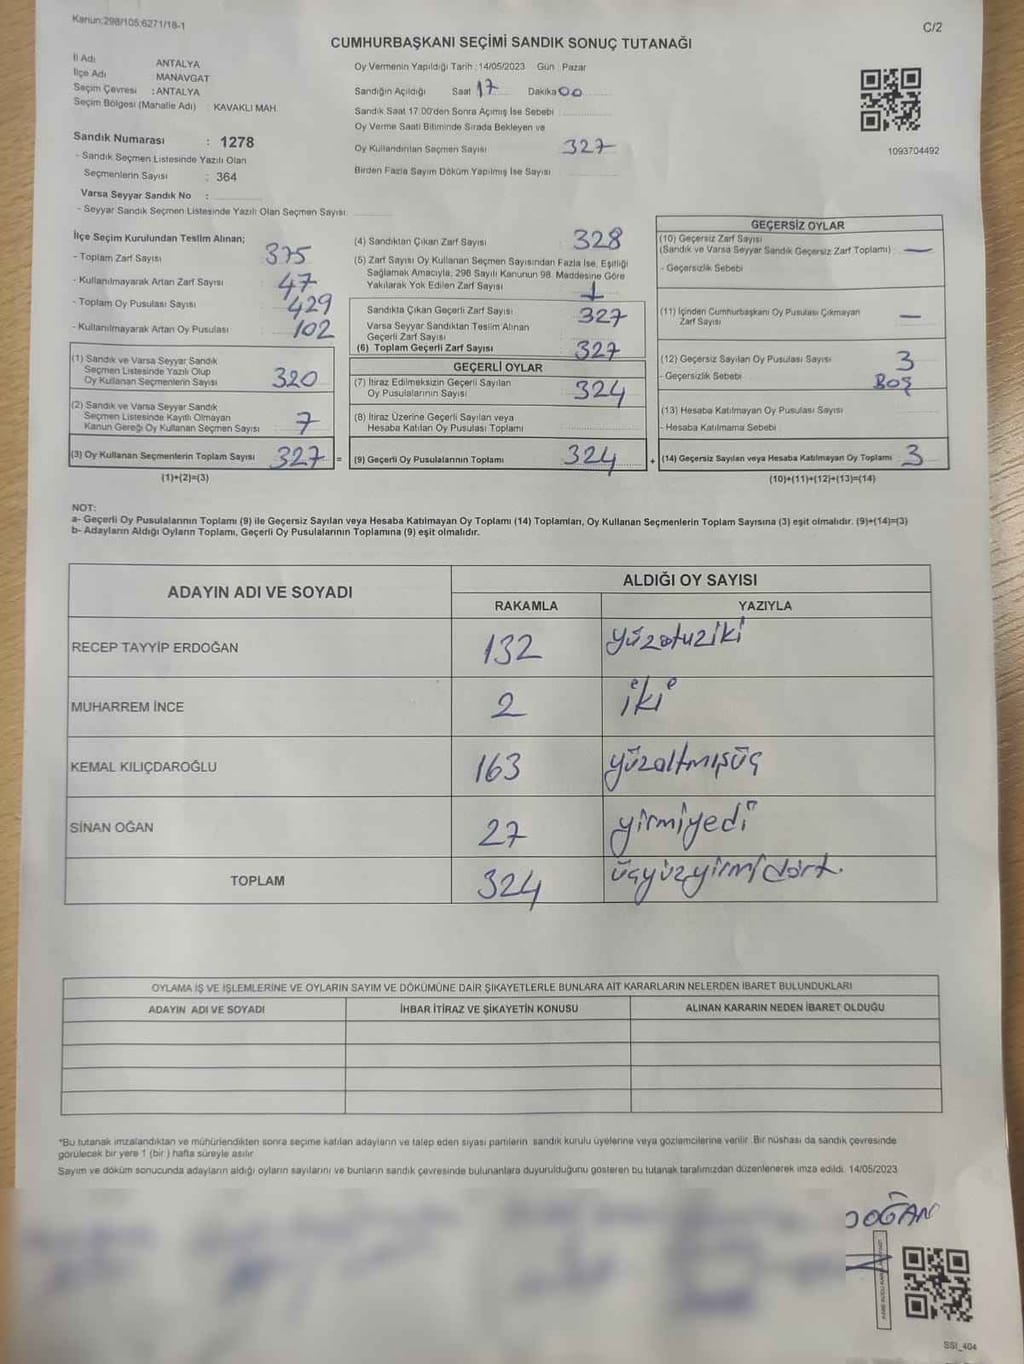 Kanun:298/105;6271/18-1
C/2
CUMHURBAŞKANI SEÇİMİ SANDIK SONUÇ TUTANAĞI
İl Adı ANTALYA
İlçe Adı MANAVGAT
Seçim Çevresi : ANTALYA
Seçim Bölgesi (Mahalle Adı) : KAVAKLI MAH.
Sandık Numarası : 1278
- Sandık Seçmen Listesinde Yazılı Olan
Seçmenlerin Sayısı : 364
Varsa Seyyar Sandık No :
- Seyyar Sandık Seçmen Listesinde Yazılı Olan Seçmen Sayısı:
Oy Vermenin Yapıldığı Tarih : 14/05/2023 Gün : Pazar
Sandığın Açıldığı Saat 17 Dakika 00
Sandık Saat 17.00'den Sonra Açımış İse Sebebi
Oy Verme Saati Bitiminde Sırada Bekleyen ve
Oy Kullandırılan Seçmen Sayısı 327
Birden Fazla Sayım Döküm Yapılmış İse Sayısı
1093704492
İlçe Seçim Kurulundan Teslim Alınan;
- Toplam Zarf Sayısı 375
- Kullanılmayarak Artan Zarf Sayısı 47
- Toplam Oy Pusulası Sayısı 429
- Kullanılmayarak Artan Oy Pusulası 102
(1) Sandık ve Varsa Seyyar Sandık
Seçmen Listesinde Yazılı Olup
Oy Kullanan Seçmenlerin Sayısı 320
(2) Sandık ve Varsa Seyyar Sandık
Seçmen Listesinde Kayıtlı Olmayan
Kanun Gereği Oy Kullanan Seçmen Sayısı 7
(3) Oy Kullanan Seçmenlerin Toplam Sayısı 327 =
(1)+(2)=(3)
(4) Sandıktan Çıkan Zarf Sayısı 328
(5) Zarf Sayısı Oy Kullanan Seçmen Sayısından Fazla İse, Eşitliği
Sağlamak Amacıyla, 298 Sayılı Kanunun 98. Maddesine Göre
Yakılarak Yok Edilen Zarf Sayısı 1
Sandıkta Çıkan Geçerli Zarf Sayısı 327
Varsa Seyyar Sandıktan Teslim Alınan
Geçerli Zarf Sayısı
(6) Toplam Geçerli Zarf Sayısı 327
GEÇERLİ OYLAR
(7) İtiraz Edilmeksizin Geçerli Sayılan
Oy Pusulalarının Sayısı 324
(8) İtiraz Üzerine Geçerli Sayılan veya
Hesaba Katılan Oy Pusulası Toplamı
(9) Geçerli Oy Pusulalarının Toplamı 324 +
GEÇERSİZ OYLAR
(10) Geçersiz Zarf Sayısı
(Sandık ve Varsa Seyyar Sandık Geçersiz Zarf Toplamı) —
- Geçersizlik Sebebi
(11) İçinden Cumhurbaşkanı Oy Pusulası Çıkmayan
Zarf Sayısı —
(12) Geçersiz Sayılan Oy Pusulası Sayısı 3
- Geçersizlik Sebebi BOŞ
(13) Hesaba Katılmayan Oy Pusulası Sayısı
- Hesaba Katılmama Sebebi
(14) Geçersiz Sayılan veya Hesaba Katılmayan Oy Toplamı 3
(10)+(11)+(12)+(13)=(14)
NOT:
a- Geçerli Oy Pusulalarının Toplamı (9) ile Geçersiz Sayılan veya Hesaba Katılmayan Oy Toplamı (14) Toplamları, Oy Kullanan Seçmenlerin Toplam Sayısına (3) eşit olmalıdır. (9)+(14)=(3)
b- Adayların Aldığı Oyların Toplamı, Geçerli Oy Pusulalarının Toplamına (9) eşit olmalıdır.
ADAYIN ADI VE SOYADI ALDIĞI OY SAYISI
RAKAMLA YAZIYLA
RECEP TAYYİP ERDOĞAN 132 yüzotuziki
MUHARREM İNCE 2 iki
KEMAL KILIÇDAROĞLU 163 yüzaltmışüç
SİNAN OĞAN 27 yirmiyedi
TOPLAM 324 üçyüzyirmidört.
OYLAMA İŞ VE İŞLEMLERİNE VE OYLARIN SAYIM VE DÖKÜMÜNE DAİR ŞİKAYETLERLE BUNLARA AİT KARARLARIN NELERDEN İBARET BULUNDUKLARI
ADAYIN ADI VE SOYADI İHBAR İTİRAZ VE ŞİKAYETİN KONUSU ALINAN KARARIN NEDEN İBARET OLDUĞU
*Bu tutanak imzalandıktan ve mühürlendikten sonra seçime katılan adayların ve talep eden siyasi partilerin sandık kurulu üyelerine veya gözlemcilerine verilir. Bir nüshası da sandık çevresinde
görülecek bir yere 1 (bir) hafta süreyle asılır.
Sayım ve döküm sonucunda adayların aldığı oyların sayılarını ve bunların sandık çevresinde bulunanlara duyurulduğunu gösteren bu tutanak tarafımızdan düzenlenerek imza edildi. 14/05/2023
DOĞAN
SSI_404